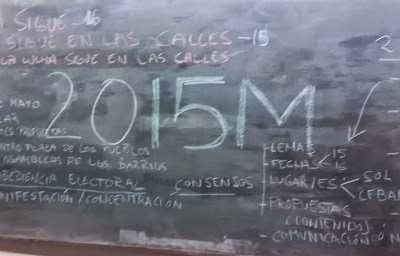 SIGUE 16
SIGUE EN LAS CALLES - 15
LA LUCHA SIGUE EN LAS CALLES
2015M
MAYO
PROPUESTAS
PLAZA DE LOS PUEBLOS
ASAMBLEAS DE LOS BARRIOS
ELECTORAL
/CONCENTRACIÓN
CONSENSOS
- LEMAS
- FECHAS < 15
16
- LUGAR/ES < SOL
- PROPUESTAS
(CONTENIDO)
- COMUNICACIÓN